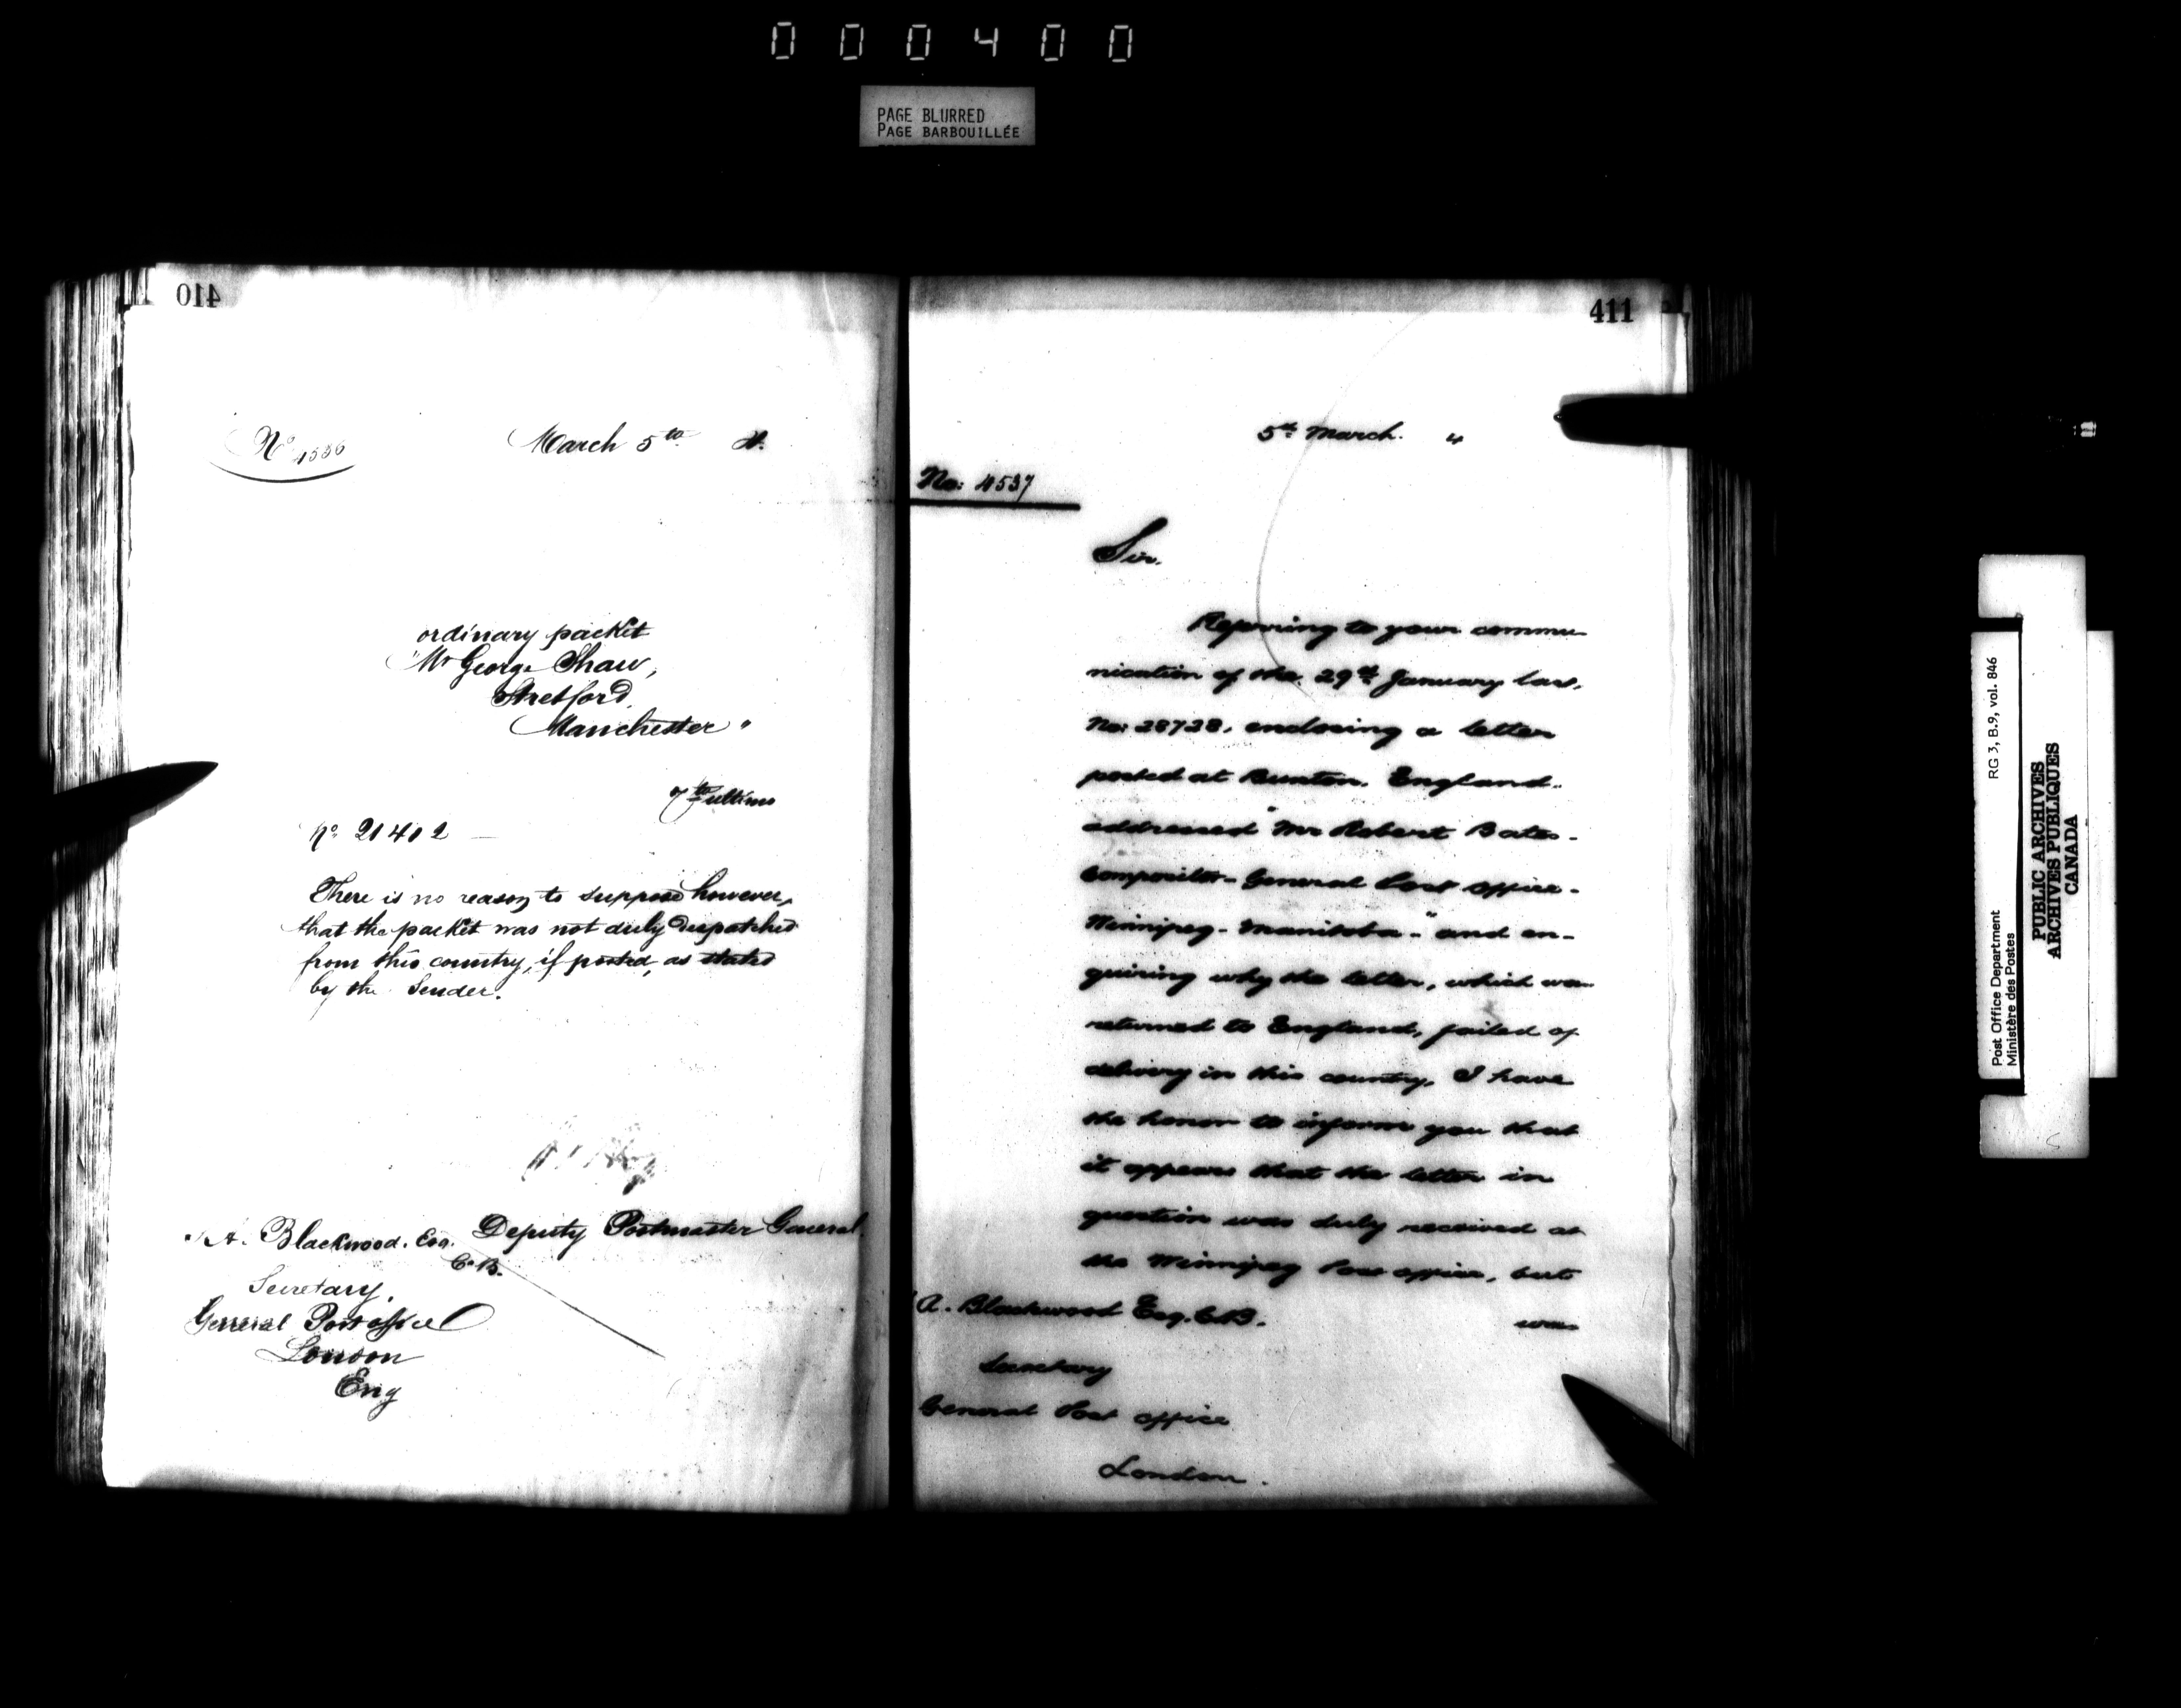 000400
PAGE BLURRED
PAGE BARBOUILLÉE
410
No 4536
March 5th 4.
ordinary packet
"Mr George Shaw,
Stretford,
Manchester"
7th ultimo
No 21402
There is no reason to suppose however,
that the packet was not duly despatched
from this country, if posted, as stated
by the Sender.
A. Blackwood. Esq. Deputy Postmaster General
C.B.
Secretary,
General Post office
London
Eng
411
5th March. 4
No: 4537
Sir.
Referring to your commu-
nication of the 29th January last,
No: 28728, enclosing a letter
posted at Buxton. England.
addressed "Mr Robert Bates-
Compositor- General Post Office-
Winnipeg- Manitoba-" and en-
quiring why the letter, which was
returned to England, failed of
delivery in this country, I have
the honor to inform you that
it appears that the letter in
question was duly received at
the Winnipeg Post office, but
was
A. Blackwood Esq. C.B.
Secretary
General Post office
London.
Post Office Department
Ministère des Postes
RG 3, B.9, vol. 846
PUBLIC ARCHIVES
ARCHIVES PUBLIQUES
CANADA